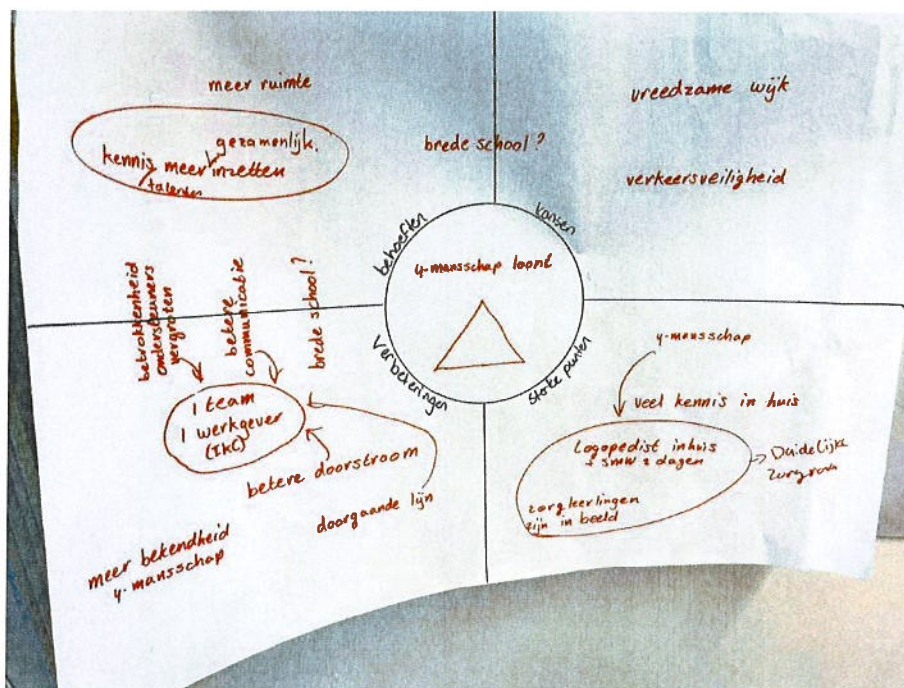 meer ruimte
gezamenlijk.
kennis meer inzetten
talenten
brede school?
vreedzame wijk
verkeersveiligheid
behoeften
kansen
4-mansschap loont
Verbeteringen
Sterke punten
betrokkenheid
ondersteuners
vergroten
betere
communicatie
brede school?
1 team
1 werkgever
(IKC)
betere doorstroom
doorgaande lijn
meer bekendheid
4-mansschap
4-mansschap
veel kennis in huis
Logopedist inhuis
+ SMW 2 dagen
Duidelijke
zorgleerlingen
zijn in beeld